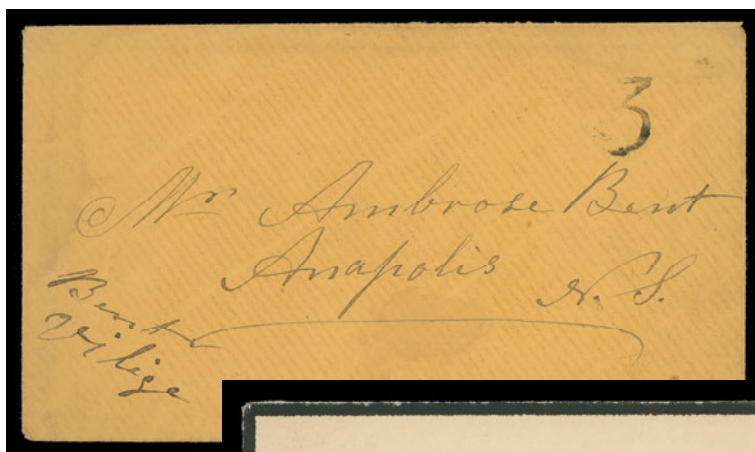 3
Mr Ambrose Bent
Anapolis
N. S.
Bents
Vilige